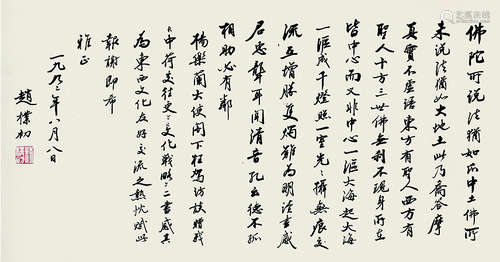 佛陀所说法犹如爪中土佛所
未说法犹如大地土此乃乔答摩
真实不虚语东方有圣人西方有
圣人十方三世佛无刹不现身所在
皆中心而又非中心一沤大海起大海
一沤成千灯照一室光光摄无痕交
流互增胜
君忽聋耳闻清音孔云德不孤
相助必有邻
杨乐兰大使阁下枉驾访故赠我
中荷交往史文化战略二书感其
为东西文化友好交流之热忱赋此
报谢即希
雅正
一九九二年八月八日
赵朴初